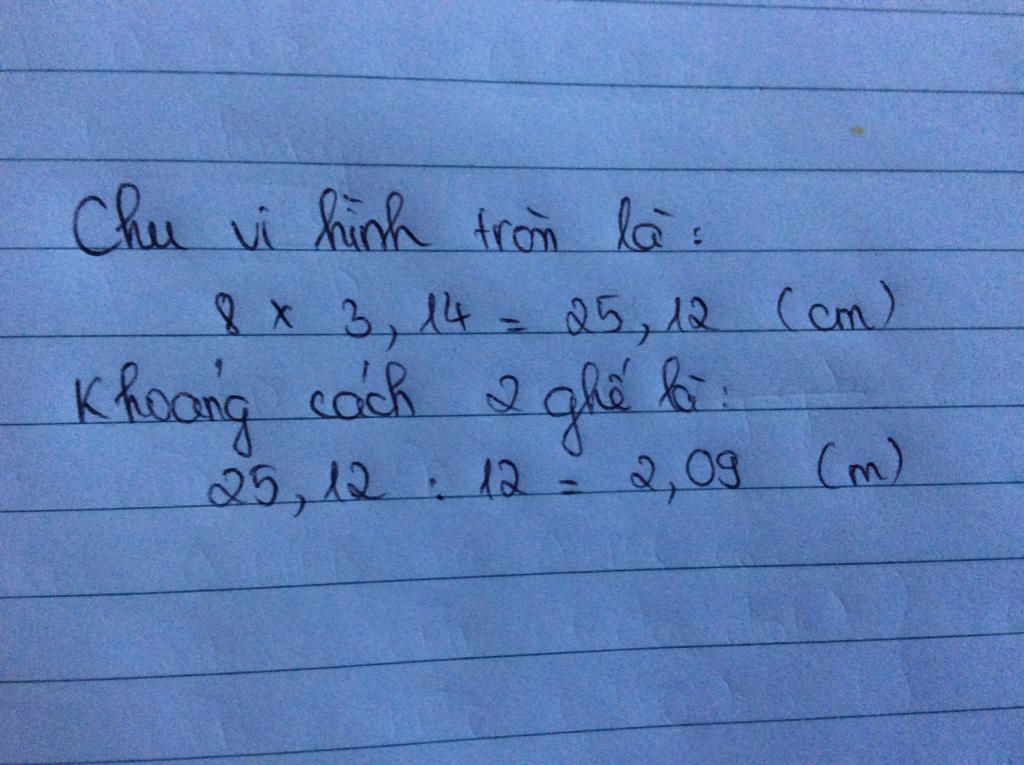 Chu vi hình tròn là:
8 x 3,14 = 25,12 (cm)
Khoảng cách 2 ghế là:
25,12 : 12 = 2,09 (m)